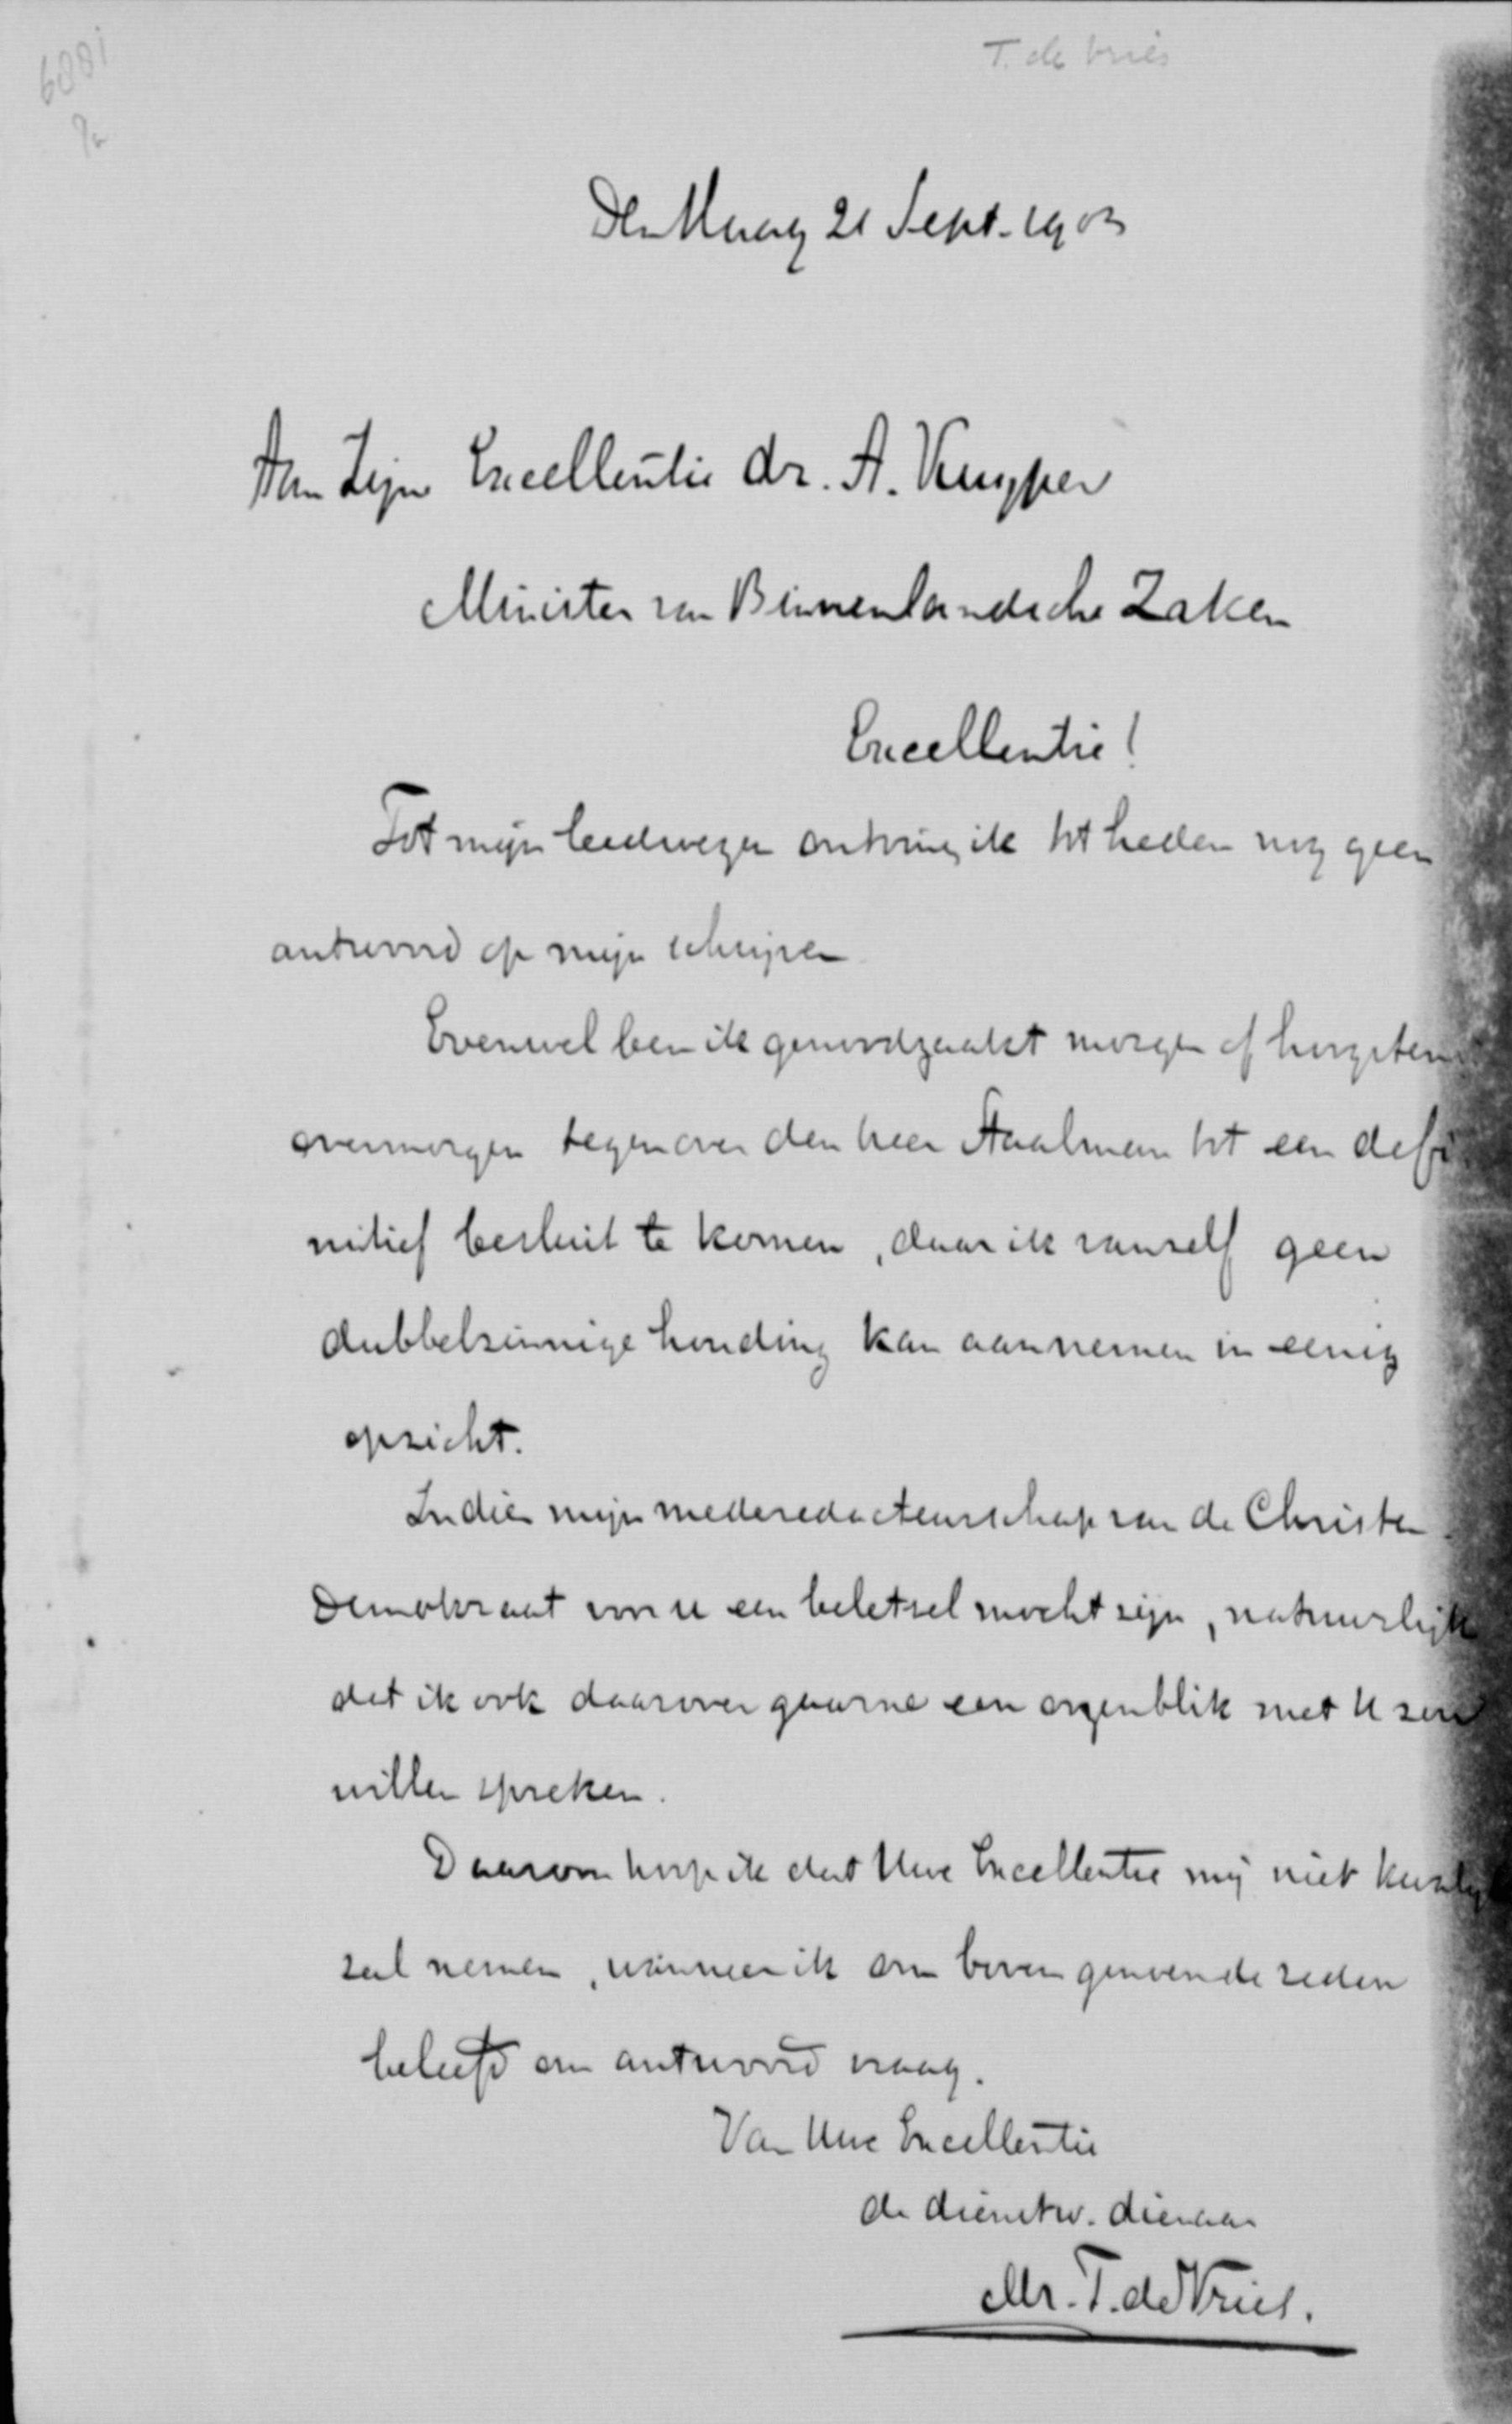 T. de Vries
Den Haag 21 Sept. 1903
Aan Zijne Excellentie dr. A. Kuyper
Minister van Binnenlandsche Zaken
Excellentie!
Tot mijn leedwezen ontving ik tot heden nog geen
antwoord op mijn schrijven
Evenwel ben ik genoodzaakt morgen of hoogstens
overmorgen tegenover den heer Staalman tot een defi
nitief besluit te komen, daar ik vanzelf geen
dubbelzinnige houding kan aannemen in eenig
opzicht.
Indien mijn mederedacteurschap van de Christen
Demokraat voor u een beletsel mocht zijn, natuurlijk
dat ik ook daarover gaarne een oogenblik met U zou
willen spreken.
Daarom hoop ik dat Uwe Excellentie mij niet kwalijk
zal nemen, wanneer ik om bovengenoemde reden
beleefd om antwoord vraag.
Van Uwe Excellentie
de dienstw. dienaar
Mr. T. de Vries.